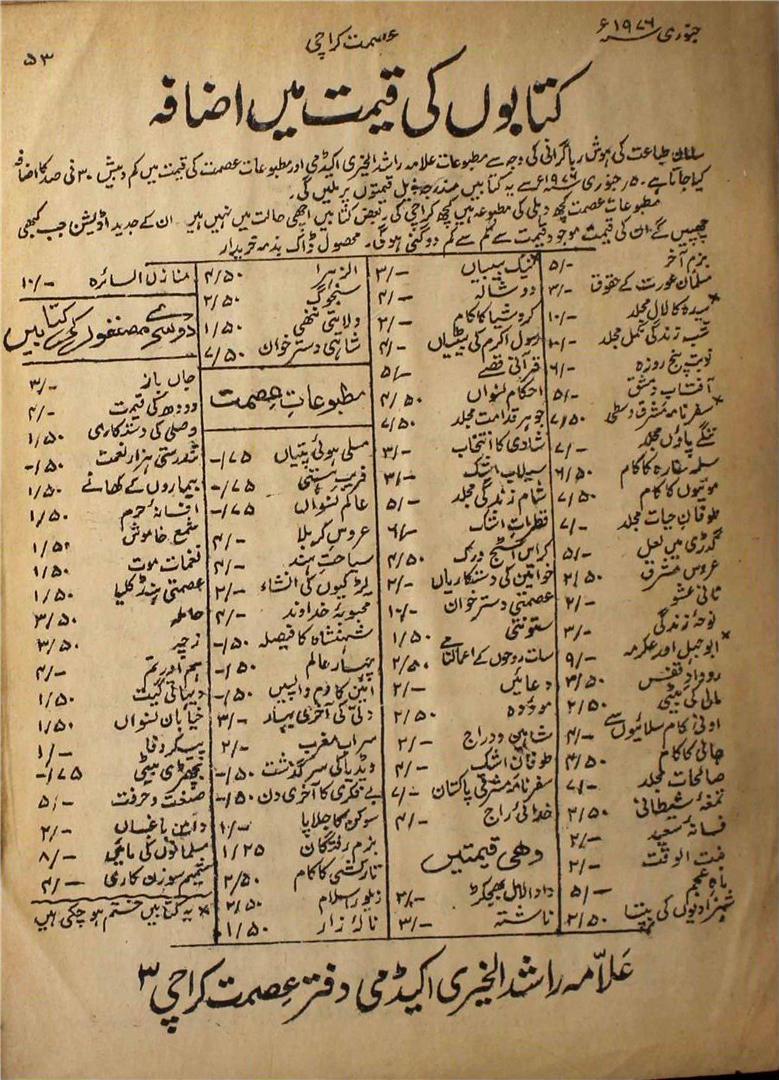 جنوری ۱۹۷۶ء
عصمت کراچی
۵۳
کتابوں کی قیمت میں اضافہ
سامان طباعت کی ہوش ربا گرانی کی وجہ سے مطبوعات علامہ راشد الخیری اکیڈمی اور مطبوعات عصمت کی قیمت میں کم و بیش ۳۰ فی صد کا اضافہ
کیا جاتا ہے۔ ۵؍ جنوری ۱۹۷۶ء سے یہ کتابیں مندرجہ ذیل قیمتوں پر ملیں گی۔
مطبوعات عصمت کچھ دہلی کی مطبوعہ ہیں کچھ کراچی کی بعض کتابیں اچھی حالت میں نہیں ہیں۔ ان کے جدید اڈیشن جب کبھی
چھپیں گے ان کی قیمت موجودہ قیمت سے کم سے کم دو گنی ہوگی۔ محصول ڈاک بذمہ خریدار
بزم آخر ۵/-
مسلمان عورت کے حقوق ۳/-
×سیدہ کا لال مجلد ۱۰/-
شب زندگی مکمل مجلد ۱۰/-
نوبت پنج روزہ ۶/-
آفتاب دمشق ۵/-
×سفرنامہ مشرق وسطی ۷/۵۰
ننگے پاؤں مجلد ۷/-
سلمہ ستارہ کا کام ۶/۵۰
موتیوں کا کام ۷/۵۰
طوفان حیات مجلد ۷/-
گدڑی میں لعل ۵/-
عروس مشرق ۲/۵۰
نانی عشو ۲/-
نوحہ زندگی ۳/-
×ابوجہل اور عکرمہ ۹/-
روداد قفس ۳/۵۰
مالی کی بیٹی ۲/۵۰
اونی کام سلائیوں سے ۴/-
جالی کا کام ۴/۵۰
صالحات مجلد ۷/-
تمغہ شیطانی ۲/۵۰
فسانہ سعید ۲/-
بنت الوقت ۲/-
ماہ عجم ۵/-
شہزادیوں کی بپتا ۲/۵۰
×نیک بیبیاں ۳/-
دوشالہ ۴/-
کروشیا کا کام ۳/-
رسول اکرم کی بیٹیاں ۴/-
قرآنی قصے ۵/-
احکام نسواں ۴/۵۰
جوہر قدامت مجلد ۷/۵۰
شادی کا انتخاب ۳/-
سیلاب اشک ۳/-
شام زندگی مجلد ۵/-
قطرات اشک ۶/-
کراس اسٹچ ورک ۴/۵۰
خواتین کی دستکاریاں ۲/-
عصمتی دسترخوان ۱۰/-
ستونتی ۱/۵۰
سات روحوں کے اعمالنامے ۲/۵۰
دعائیں ۲/-
موؤدہ ۲/۵۰
شاہین و دراج ۲/-
طوفان اشک ۴/-
سفرنامہ مشرقی پاکستان ۷/-
خدائی راج ۴/-
وھی قیمتیں
دادا لال بجھکڑ ۲/-
ناشتہ ۳/-
الزہرا ۴/۵۰
سنجوگ ۲/۵۰
ولایتی ننھی ۱/۵۰
شاہی دسترخوان ۷/۵۰
مطبوعات عصمت
مسلی ہوئی پتیاں -/۷۵
فریب ہستی -/۷۵
عالم نسواں -/۷۵
عروس کربلا ۴/-
سیاحت ہند ۴/-
لڑکیوں کی انشاء ۲/-
محبوبہ خداوند ۴/-
شہنشاہ کا فیصلہ -/۵۰
بہار عالم -/۵۰
امین کا دم واپسیں -/۵۰
دلی کی آخری بہار ۳/-
سراب مغرب ۲/-
ویڈیا کی سرگذشت -/۵۰
بے فکری کا آخری دن -/۵۰
سوکن کا جلاپا ۱/-
بزم رفتگان ۱/۲۵
تارکشی کا کام ۲/۵۰
زیور اسلام ۲/۵۰
نالہ زار ۱/۵۰
منازل السائرہ ۱۰/-
دوسرے مصنفوں کی کتابیں
جاں باز ۳/-
دودھ کی قیمت ۴/-
وصلی کی دستکاری ۱/۵۰
تندرستی ہزار نعمت -/۵۰
بیماروں کے کھانے ۱/۵۰
افسانہ حرم ۱/۵۰
شمع خاموش ۱/۵۰
نغمات موت ۱/۵۰
عصمتی ہنڈکلیا ۱/۵۰
حاملہ ۳/۵۰
زچہ ۳/۵۰
ہم اور تم ۴/-
دیہاتی گیت ۱/۵۰
خیابان نسواں ۱/۵۰
پیکر وفا ۱/-
بچھڑی بیٹی -/۷۵
صنعت و حرفت ۵/-
دامن باغباں ۲/-
مسلمانوں کی مائیں ۸/-
شمیم سوزن کاری ۴/-
× یہ کتابیں ختم ہو چکی ہیں
علامہ راشد الخیری اکیڈمی دفتر عصمت کراچی ۳